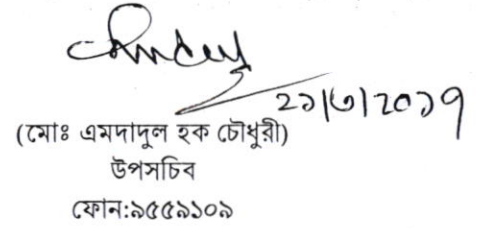 ২১/৩/২০১৭
(মোঃ এমদাদুল হক চৌধুরী)
উপসচিব
ফোন:৯৫৫৯১০৯